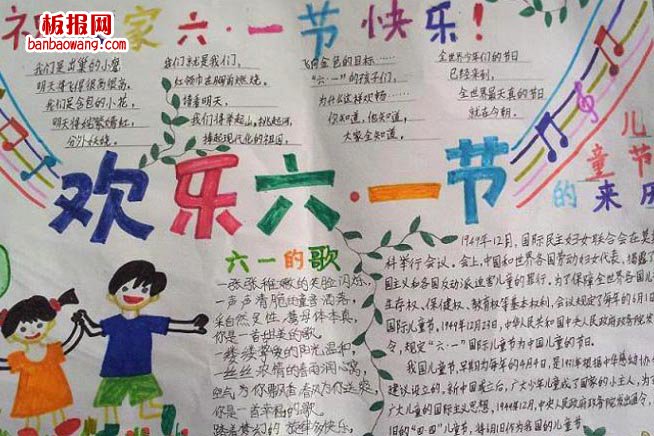 板报网
banbaowang.com
祝 家六·一节快乐!
我们是出巢的小鹰,
明天将飞得很高很高。
我们是含苞的小花,
明天将姹紫嫣红,
分外妖娆。
我们就是我们,
红领巾在胸前燃烧。
待看明天,
我们将举起山,挑起河,
捧起现代化的祖国,
飞向金色的目标……
“六·一”的孩子们,
为什么这样欢畅……
你知道,他知道,
大家全知道,
全世界少年们的节日
已经来到,
全世界最天真的节日
就在今朝。
欢乐六·一节
儿
童节
的来历
六一的歌
一张张稚嫩的笑脸闪烁,
一声声清脆的童音洒落,
采自然灵性,
你是一首甜美的歌。
一缕缕挚爱的阳光温和,
一丝丝浓情的春雨润心窝,
空气为你飘香春风为你送爽,
你是一首幸福的歌
踏着梦幻的 旋律多快乐,
1949年12月,国际民主妇女联合会在莫
科举行会议。会上,中国和世界各国劳动妇女代表,揭露了
国主义和各国反动派迫害儿童的罪行。为了保障全世界各国儿
生存权、保健权、教育权等基本权利,会议规定了每年的6月1日
国际儿童节,1949年12月23日,中华人民共和国中央人民政府政务院发
令,规定“六·一”国际儿童节为中国儿童的节日。
我国儿童节,早期为每年的4月4日,是1931年根据中华慈幼协
建议设立的。新中国成立后,广大少年儿童成了国家的小主人,为了
广大儿童的国际主义思想,1949年12月,中央人民政府政务院发出通令,
旧的“四·四”儿童节,将6月1日作为我国的儿童节。